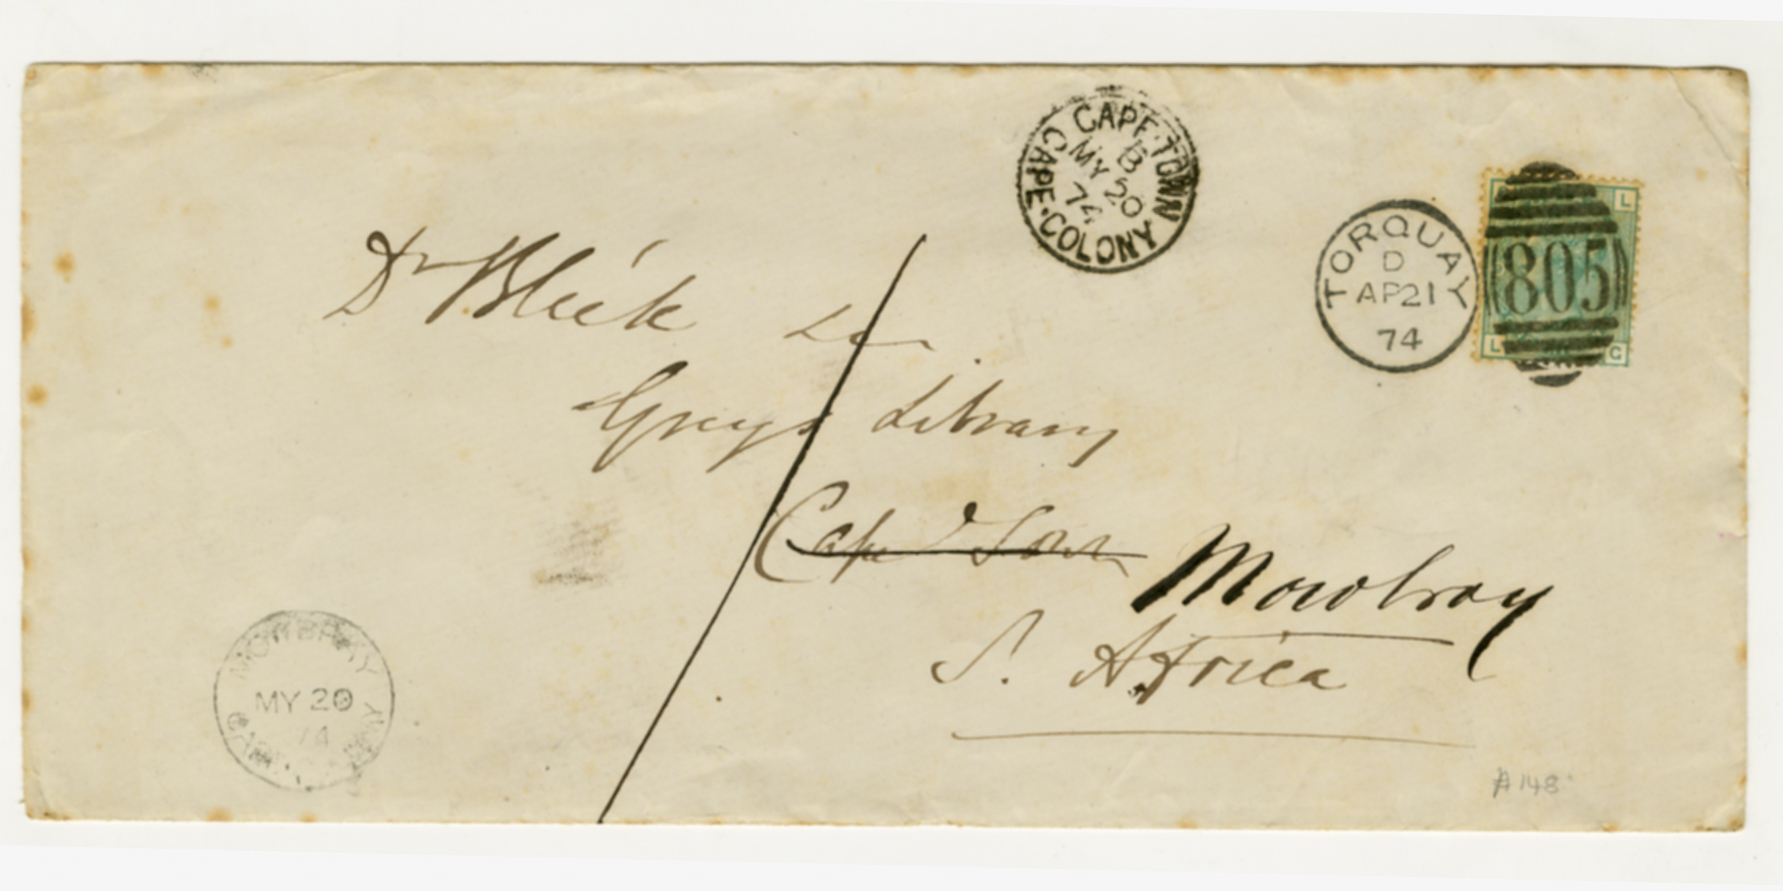 CAPE·TOWN
B
MY 20
74
CAPE·COLONY
TORQUAY
D
AP 21
74
L
805
L G
Dr Bleek
Grey's Library
Cape Town Mowbray
S. Africa
MOWBRAY
MY 20
74
A 148